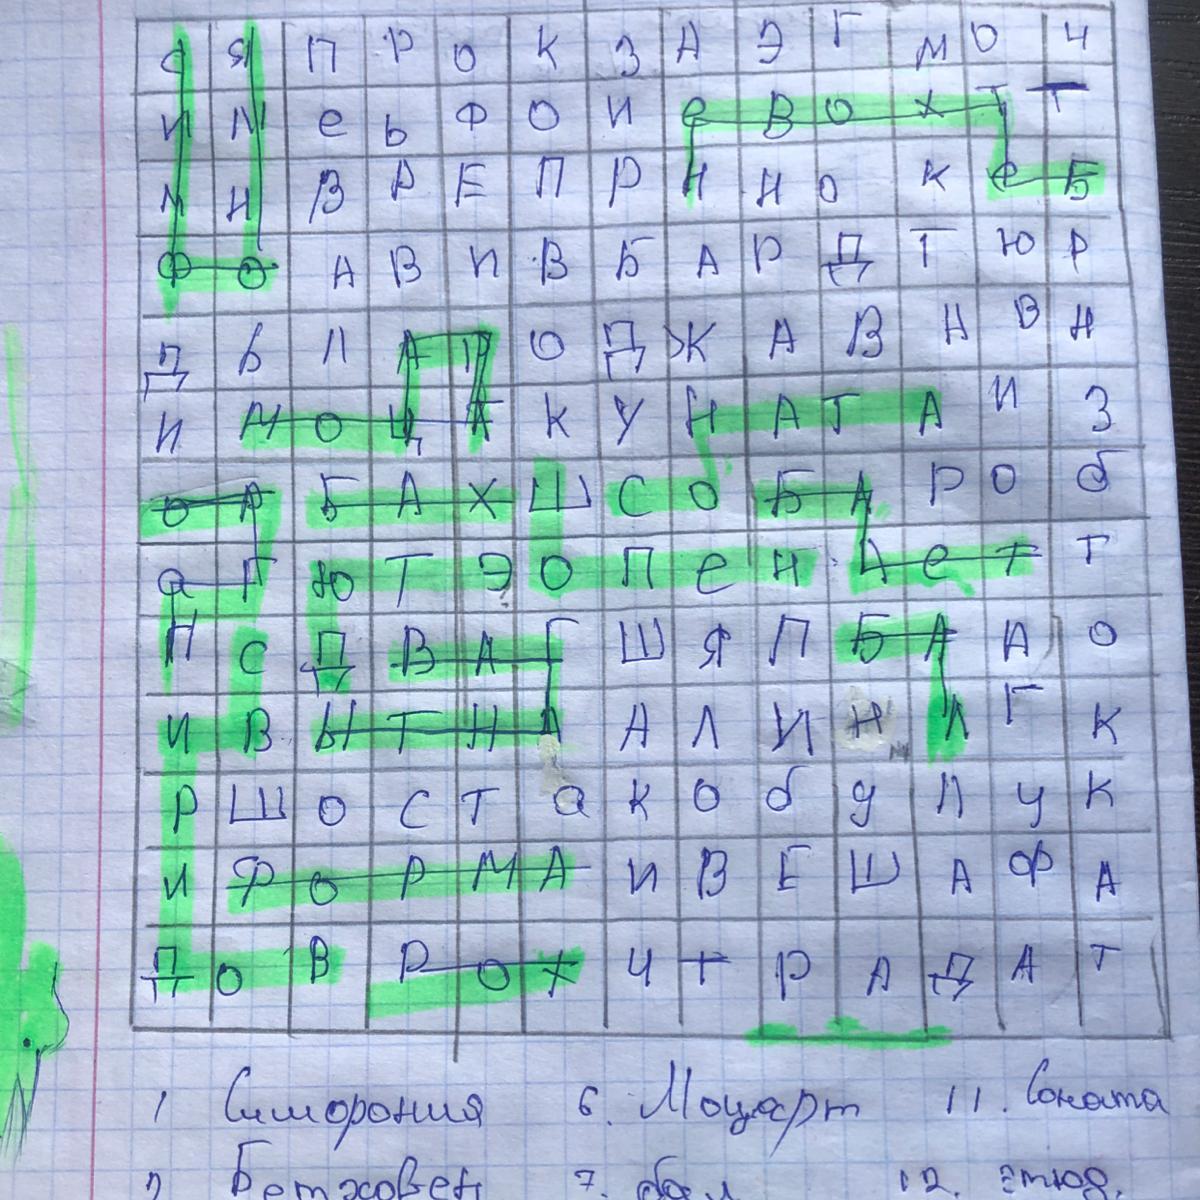 С Я П Р О К З А Э Г М О Ч
И И е Ь Ф О И е В О Х Т Т
М Н В Р Е П Р Н Н О К е Б
Ф О А В И В Б А Р Д Т Ю Р
Д Ь Л А Р О Д Ж А В Н В Н
И М О Ц А К У Н А Т А И З
О Р Б А Х Ш С О Б А Р О б
а Г Ю Т Э О П е Н Л е т Т
Н С Д В А Г Ш Я П Б А А О
И В Ы Т Н А А Л И Н Л Г К
Р Ш О С Т а К О б у Л у К
И Ф О Р М А И В Е Ш А Ф А
П О В Р О Х Ч Т Р А Д А Т
1 Симфония 6. Моцарт 11. Соната
2 Бетховен 7. бал 12. этюд.